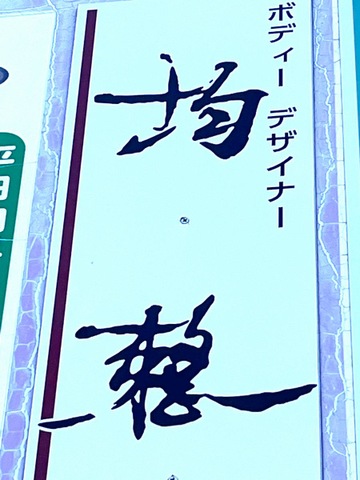 ボディー デザイナー
均整